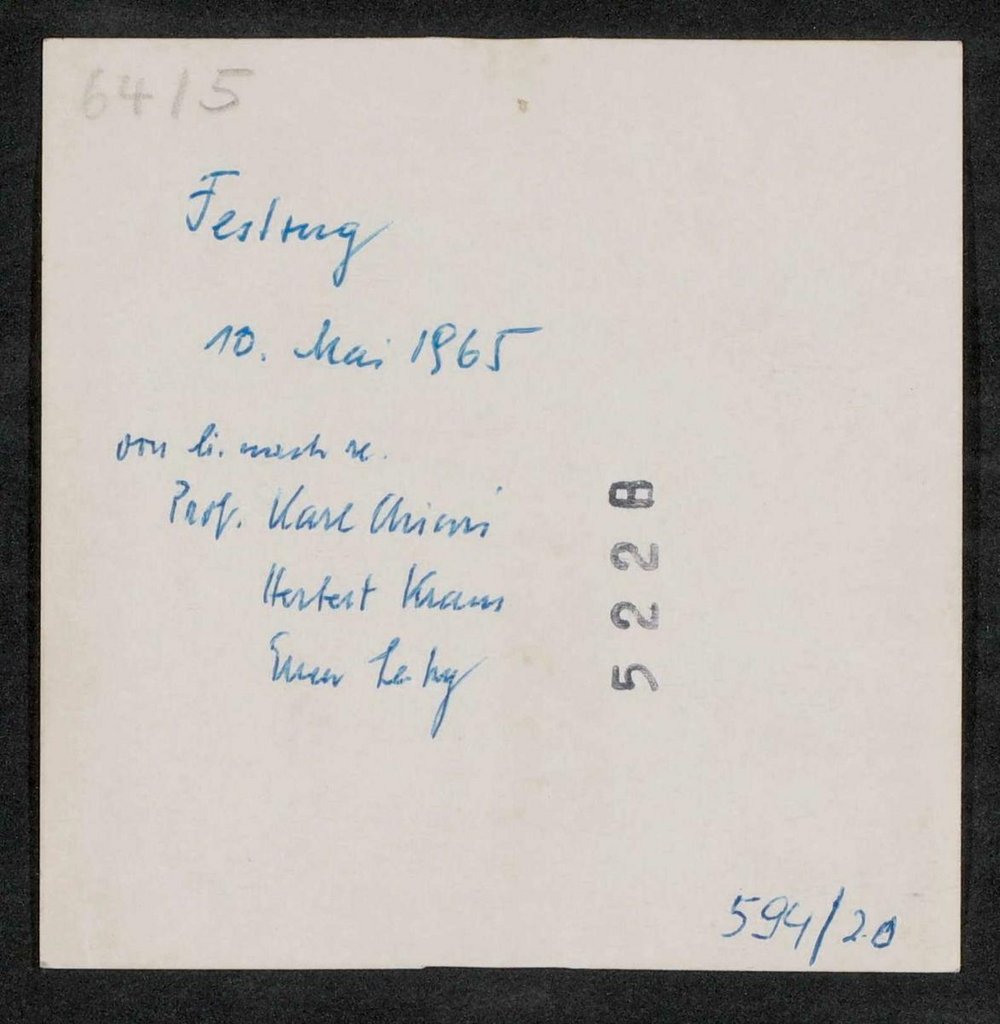 64/5
Festzug
10. Mai 1965
von li. nach re.
Prof. Karl Chiari
Herbert Kraus
5228
594/20